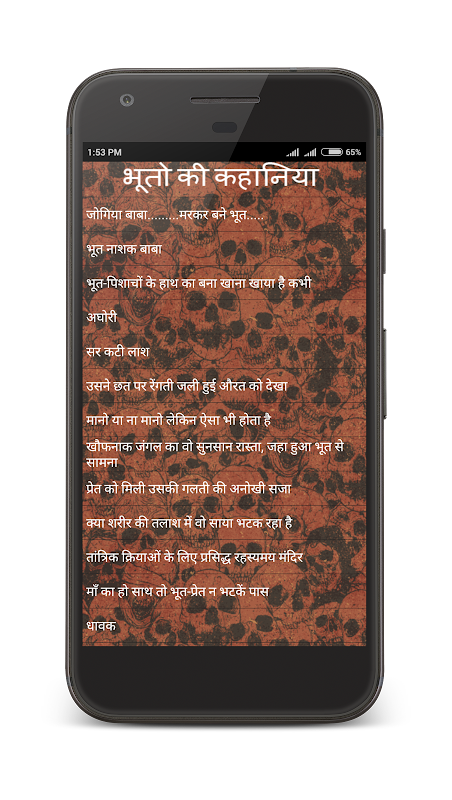 1:53 PM 65%
भूतो की कहानिया
जोगिया बाबा.........मरकर बने भूत.....
भूत नाशक बाबा
भूत-पिशाचों के हाथ का बना खाना खाया है कभी
अघोरी
सर कटी लाश
उसने छत पर रेंगती जली हुई औरत को देखा
मानो या ना मानो लेकिन ऐसा भी होता है
खौफनाक जंगल का वो सुनसान रास्ता, जहा हुआ भूत से
सामना
प्रेत को मिली उसकी गलती की अनोखी सजा
क्या शरीर की तलाश में वो साया भटक रहा है
तांत्रिक क्रियाओं के लिए प्रसिद्ध रहस्यमय मंदिर
माँ का हो साथ तो भूत-प्रेत न भटकें पास
धावक